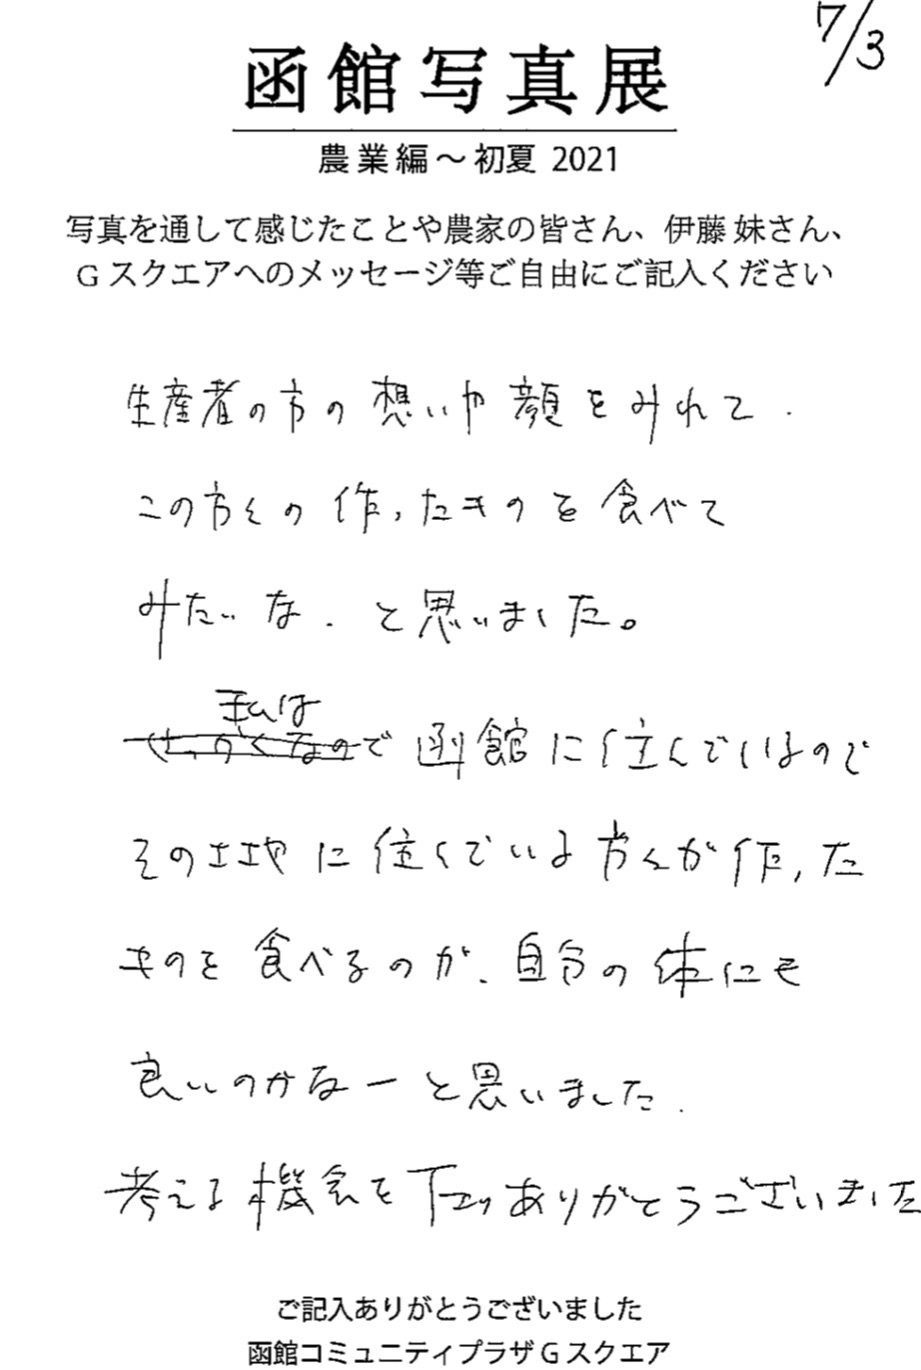 7/3
函館写真展
農業編～初夏 2021
写真を通して感じたことや農家の皆さん、伊藤 妹さん、
G スクエアへのメッセージ等ご自由にご記入ください
生産者の方の想いや顔をみれて.
この方々の作ったものを食べて
みたいな. と思いました。
私は
で函館に住んでいるので
その土地に住んでいる方々が作った
ものを食べるのが、自分の体にも
良いのかなーと思いました.
考える機会を下さりありがとうございました
ご記入ありがとうございました
函館コミュニティプラザ G スクエア